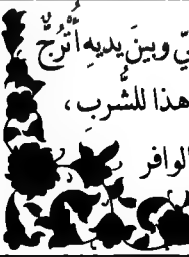 يّ وبينَ يديهِ أُتْرُجٌّ
هذا للشُّربِ،
الوافر